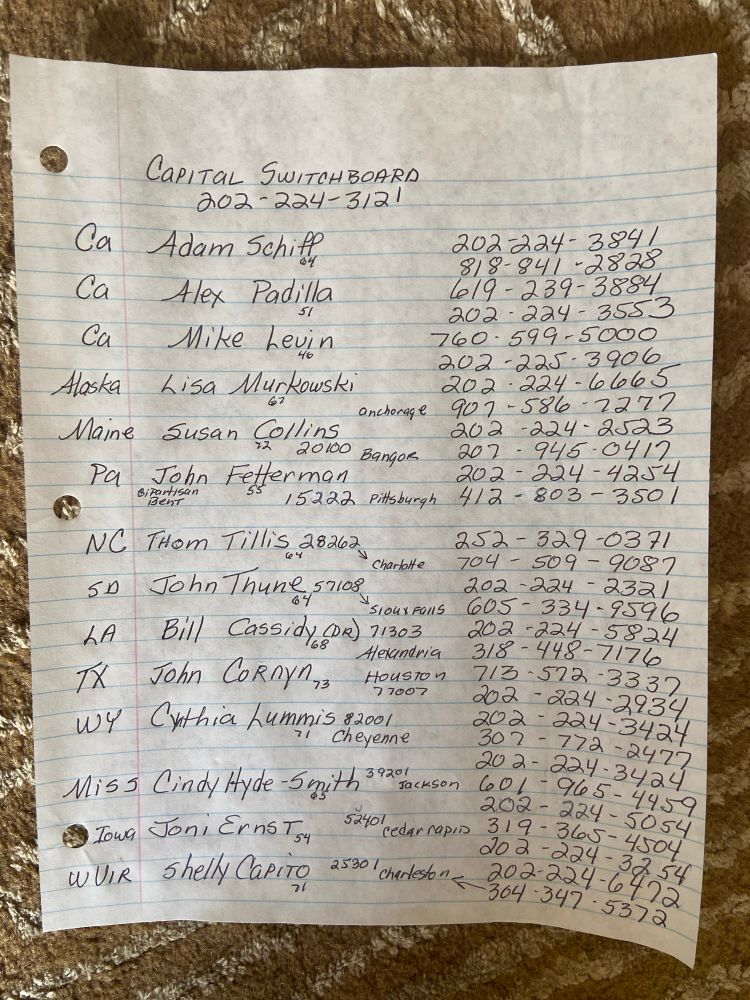 CAPITAL SWITCHBOARD
202-224-3121
Ca Adam Schiff 202-224-3841
64 818-841-2828
Ca Alex Padilla 619-239-3884
51 202-224-3553
Ca Mike Levin 760-599-5000
46 202-225-3906
Alaska Lisa Murkowski 202-224-6665
67 anchorage 907-586-7277
Maine Susan Collins 202-224-2523
72 20100 Bangor 207-945-0417
Pa John Fetterman 202-224-4254
Bipartisan Bent 55 15222 Pittsburgh 412-803-3501
NC Thom Tillis 28262 252-329-0371
64 Charlotte 704-509-9087
SD John Thune 57108 202-224-2321
64 Sioux Falls 605-334-9596
LA Bill Cassidy (DR) 71303 202-224-5824
68 Alexandria 318-448-7176
TX John Cornyn 73 Houston 713-572-3337
77007 202-224-2934
WY Cynthia Lummis 82001 202-224-3424
71 Cheyenne 307-772-2477
202-224-3424
Miss Cindy Hyde-Smith 39201 Jackson 601-965-4459
65 202-224-5054
Iowa Joni Ernst 54 52401 cedar rapids 319-365-4504
202-224-3254
WVIR Shelly Capito 25301 Charleston 202-224-6472
71 304-347-5372